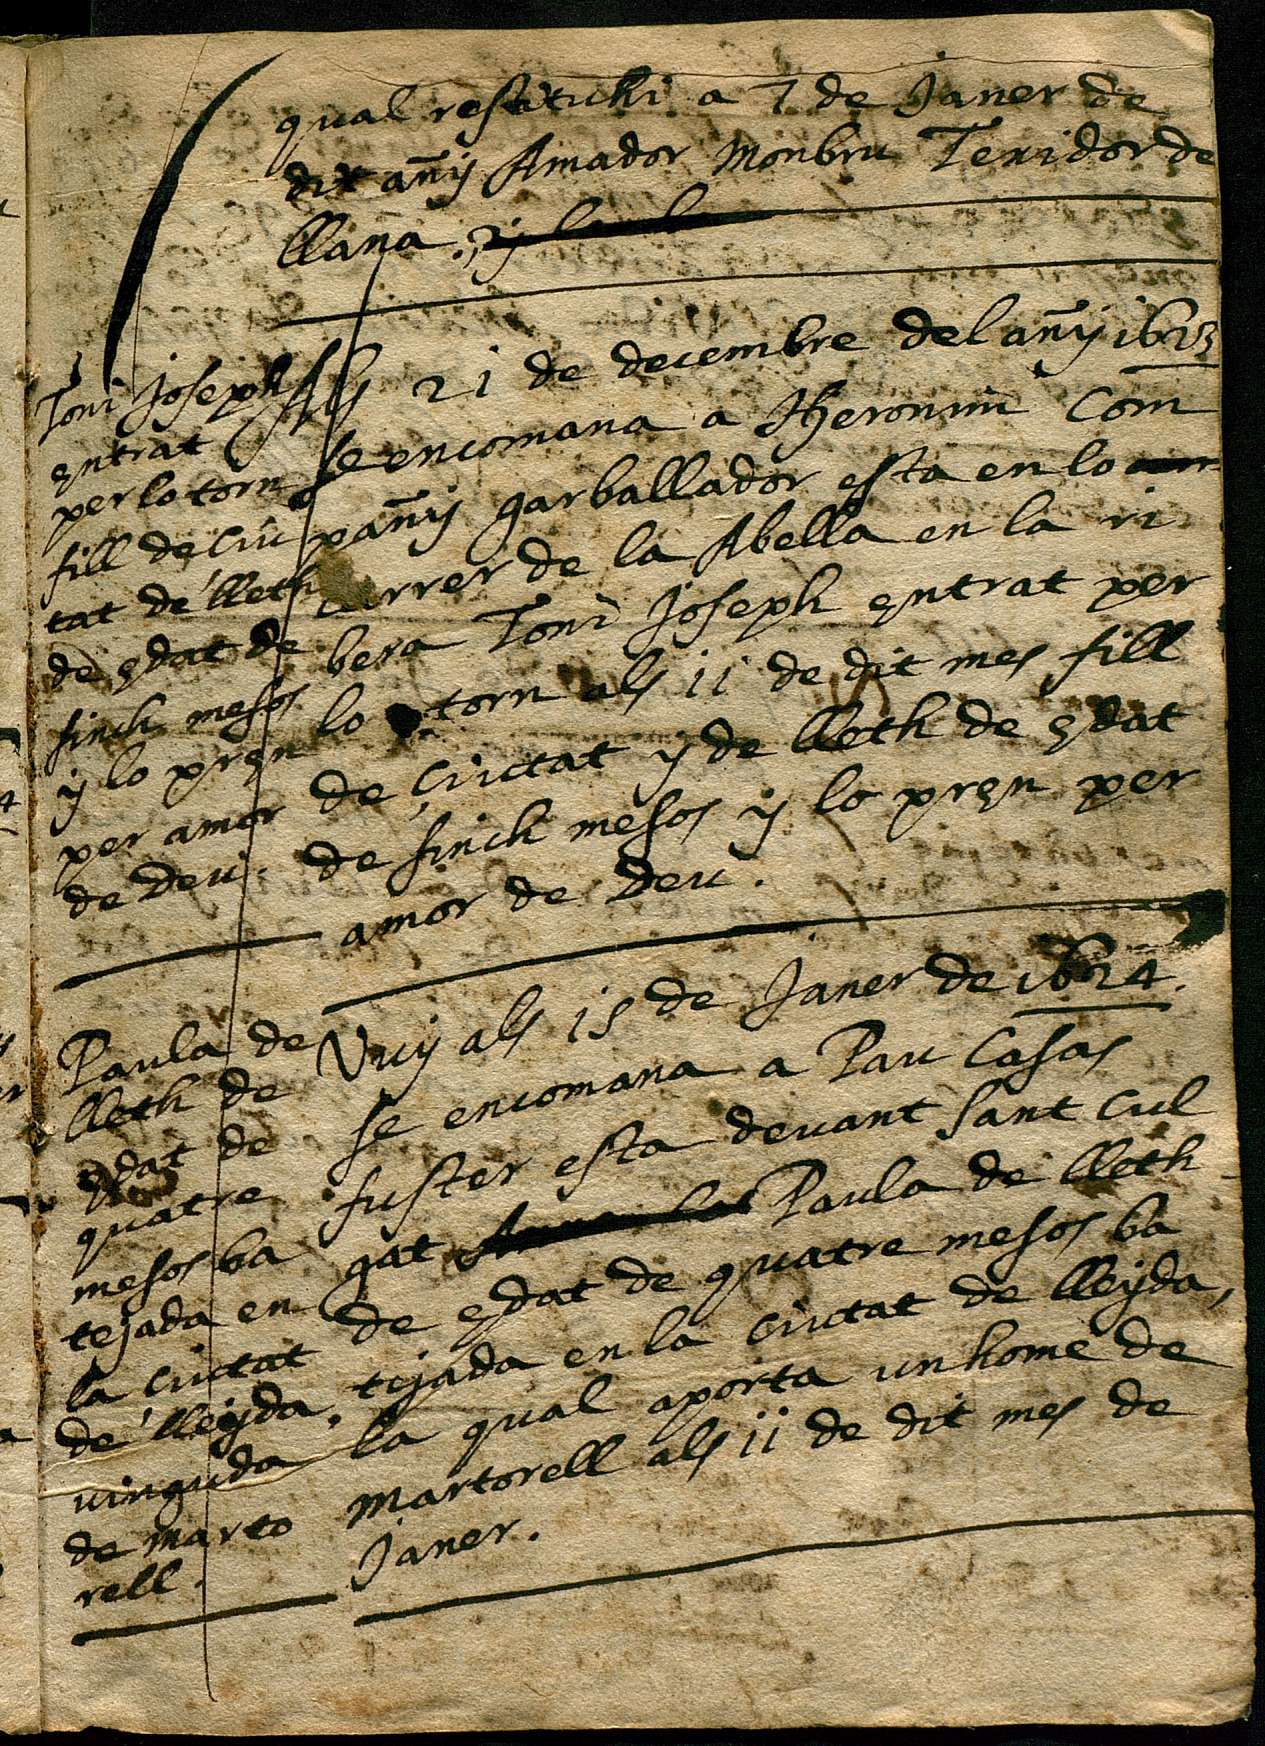 qual restituhi a 7 de Janer de
dit añy Amador Monbru Texidor de
llana.
Toni Joseph
entrat
per lo torn
fill de ciu
tat de lleth
de edat de
sinch mesos
y lo pren
per amor
de Deu.
Als 21 de decembre del añy 1623
se encomana a Hjeronim Com
pañy garballador esta en lo
carrer de la Abella en la ri
bera Toni Joseph entrat per
lo torn als 11 de dit mes fill
de Ciutat y de lleth de edat
de sinch mesos y lo pren per
amor de Deu.
Paula de
lleth de
edat de
quatre
mesos ba
tejada en
la ciutat
de lleyda,
vinguda
de marto
rell.
Vuy als 15 de Janer de 1624.
se encomana a Pau Casas
fuster esta devant Sant Cul
gat Paula de lleth
de edat de quatre mesos ba
tejada en la ciutat de lleyda,
la qual aporta un home de
Martorell als 11 de dit mes de
Janer.